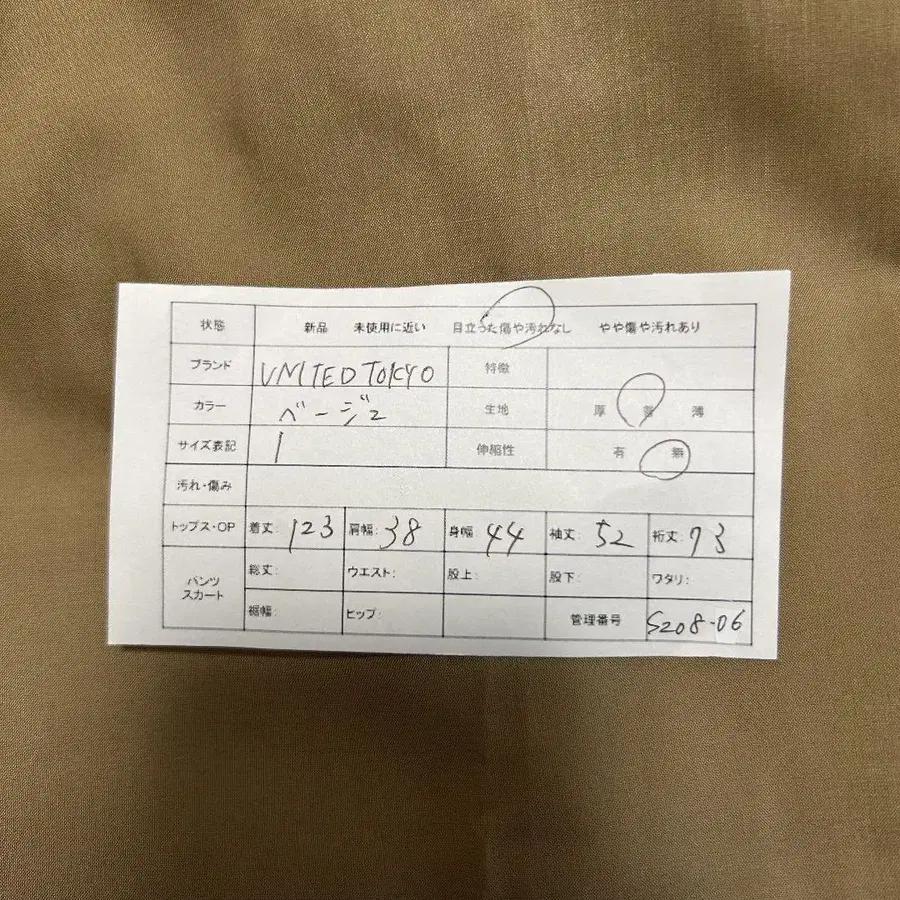 状態 新品 未使用に近い 目立った傷や汚れなし やや傷や汚れあり
ブランド UNITED TOKYO 特徴
カラー ベージュ 生地 厚 普 薄
サイズ表記 1 伸縮性 有 無
汚れ・傷み
トップス・OP 着丈: 123 肩幅: 38 身幅: 44 袖丈: 52 裄丈: 73
パンツ スカート 総丈: ウエスト: 股上: 股下: ワタリ:
裾幅: ヒップ: 管理番号 S208-06